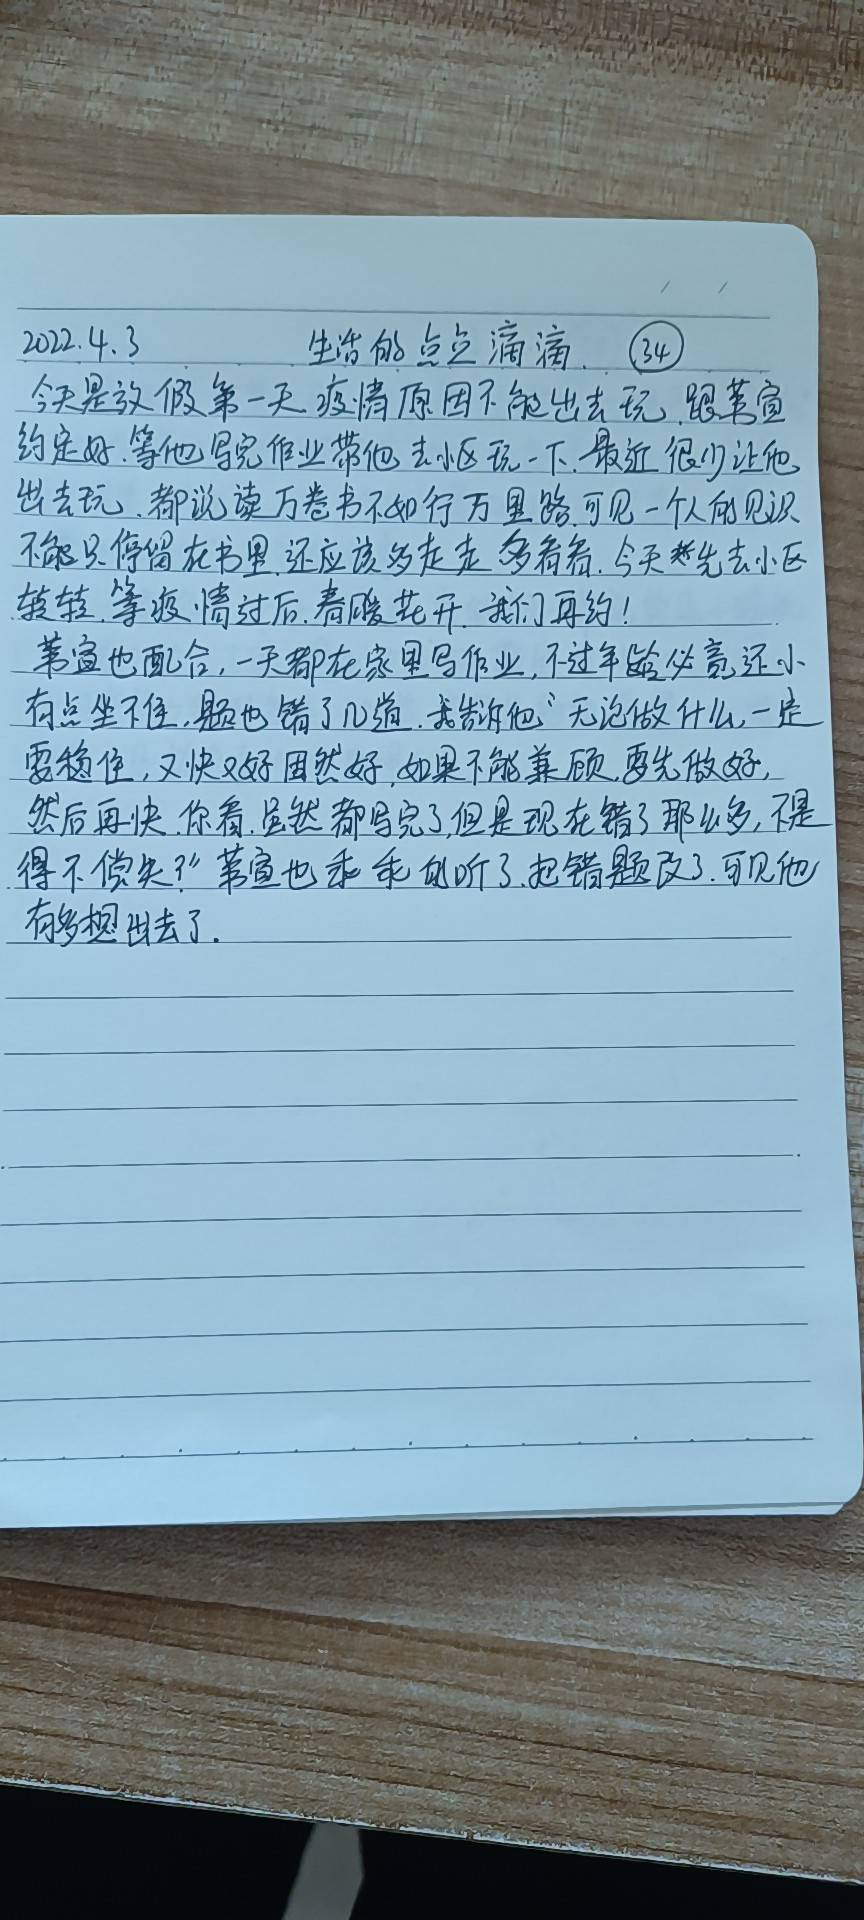 2022.4.3 生活的点点滴滴 34
今天是放假第一天.疫情原因不能出去玩.跟苇宣
约定好.等他写完作业带他去小区玩一下.最近很少让他
出去玩.都说读万卷书不如行万里路.可见一个人的见识
不能只停留在书里.还应该多走走多看看.今天先去小区
转转.等疫情过后.春暖花开.我们再约!
苇宣也配合,一天都在家里写作业,不过年龄必竟还小
有点坐不住,题也错了几道.我告诉他“无论做什么,一定
要稳住,又快又好固然好,如果不能兼顾,要先做好,
然后再快.你看.虽然都写完了,但是现在错了那么多,不是
得不偿失?”苇宣也乖乖的听了.把错题改了.可见他
有多想出去了.